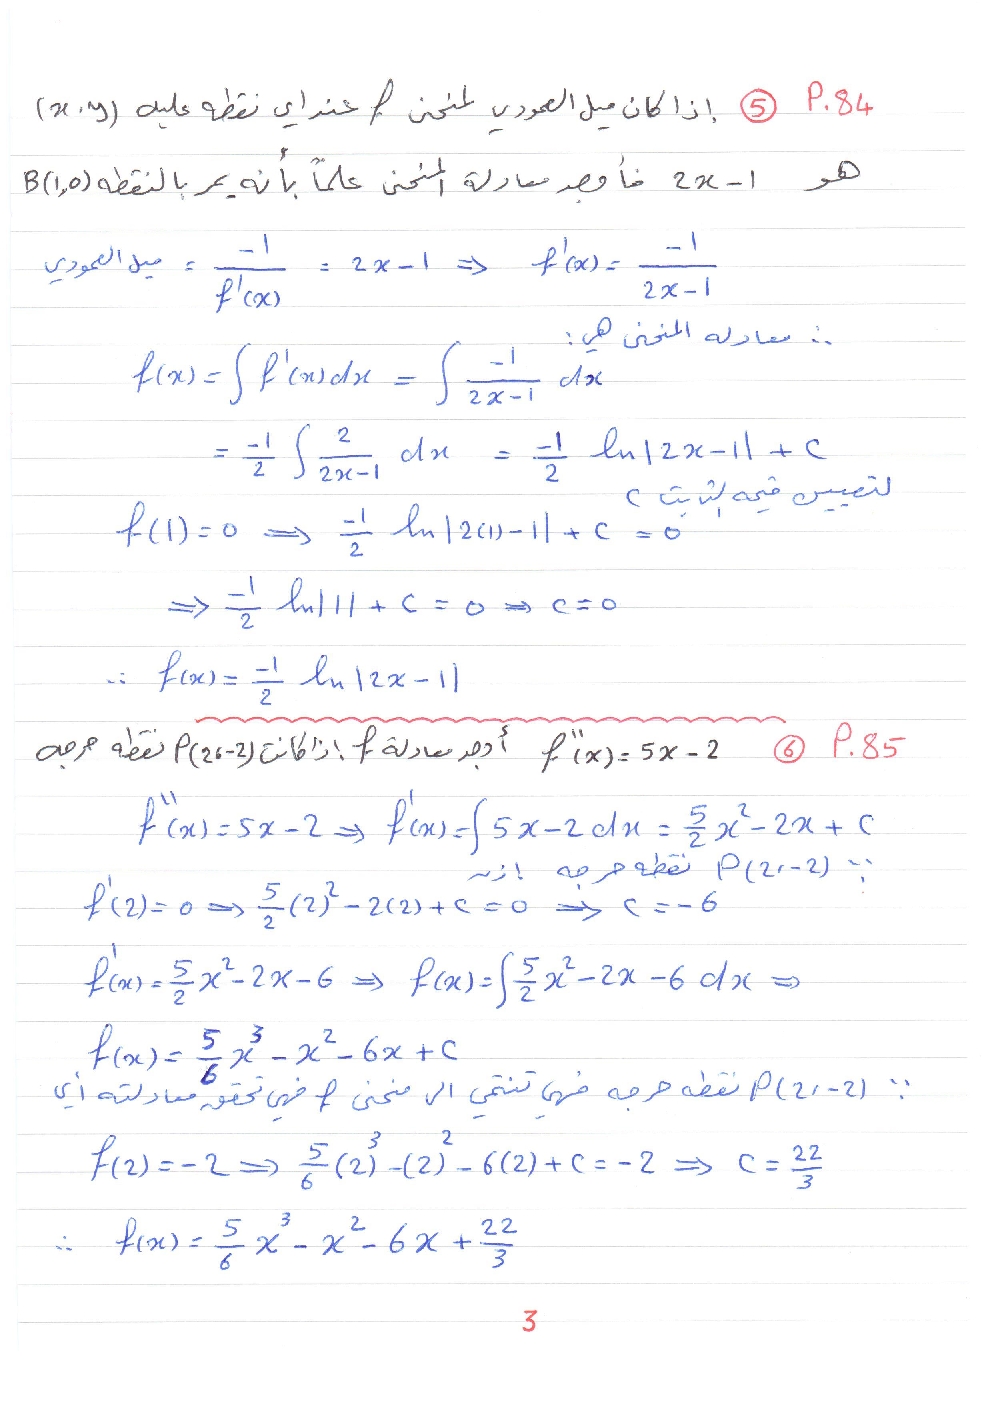 P.84 ⑤ إذا كان ميل العمودي لمنحنى f عند أي نقطه عليه (x,y)
هو 2x-1 فأوجد معادلة المنحنى علماً بأنه يمر بالنقطه B(1,0)
ميل العمودي = -1/f'(x) = 2x-1 ⇒ f'(x) = -1/(2x-1)
∴ معادله المنحنى هي:
f(x) = ∫ f'(x) dx = ∫ -1/(2x-1) dx
= -1/2 ∫ 2/(2x-1) dx = -1/2 ln|2x-1| + C
لتعيين قيمه الثابت C
f(1)=0 ⇒ -1/2 ln|2(1)-1| + C = 0
⇒ -1/2 ln|1| + C = 0 ⇒ C=0
∴ f(x) = -1/2 ln|2x-1|
P.85 ⑥ f''(x) = 5x-2 أوجد معادلة f إذا كانت P(2,-2) نقطه حرجه
f''(x) = 5x-2 ⇒ f'(x) = ∫ 5x-2 dx = 5/2 x² - 2x + C
∵ P(2,-2) نقطه حرجه إذن
f'(2)=0 ⇒ 5/2 (2)² - 2(2) + C = 0 ⇒ C = -6
f'(x) = 5/2 x² - 2x - 6 ⇒ f(x) = ∫ 5/2 x² - 2x - 6 dx ⇒
f(x) = 5/6 x³ - x² - 6x + C
∵ P(2,-2) نقطه حرجه فهي تنتمي الى منحنى f فهي تحقق معادلته أي
f(2) = -2 ⇒ 5/6 (2)³ - (2)² - 6(2) + C = -2 ⇒ C = 22/3
∴ f(x) = 5/6 x³ - x² - 6x + 22/3
3